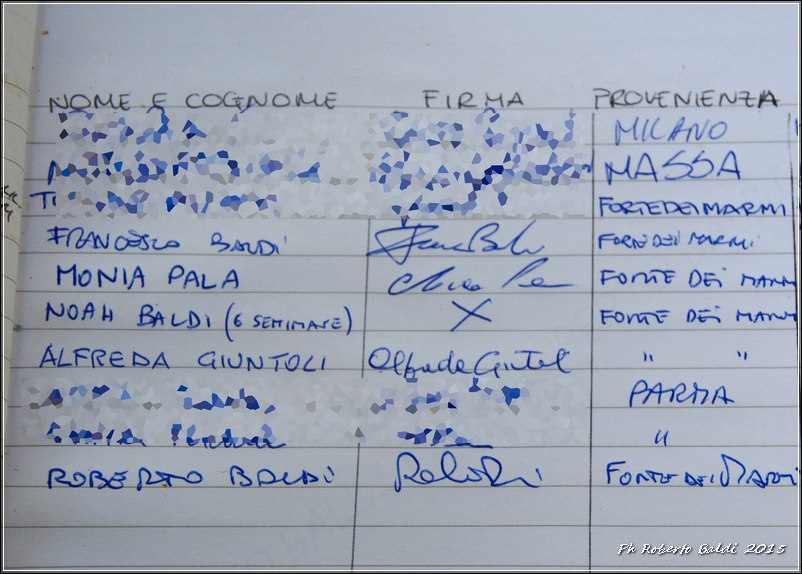 NOME E COGNOME FIRMA PROVENIENZA
MILANO
MASSA
FORTE DEI MARMI
FRANCESCO BALDI FORTE DEI MARMI
MONIA PALA FORTE DEI MARMI
NOAH BALDI (6 SETTIMANE) X FORTE DEI MARMI
ALFREDA GIUNTOLI Alfreda Giuntoli " "
PARMA
"
ROBERTO BALDI FORTE DEI MARMI
Ph Roberto Baldi 2015